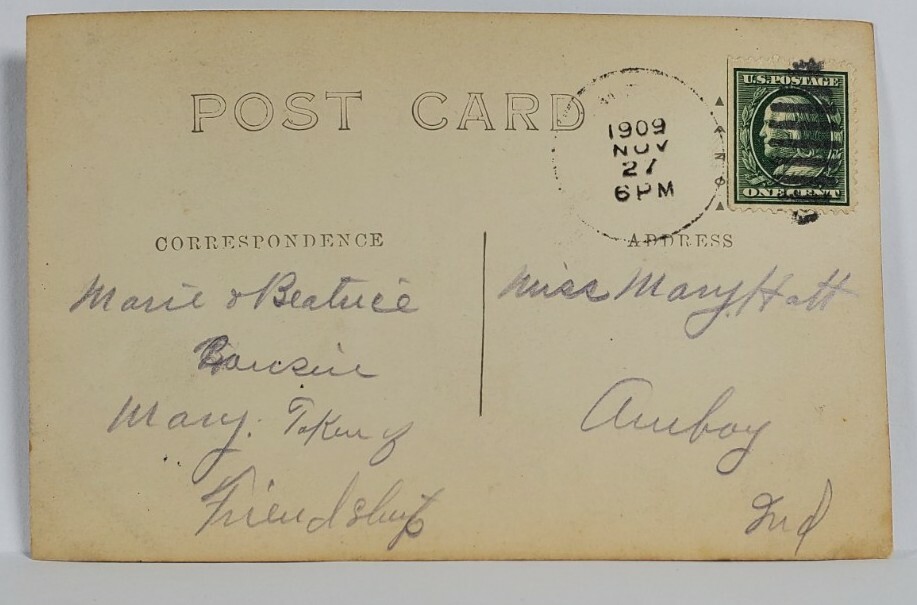 POST CARD
1909
NOV
27
6PM
U.S.POSTAGE
ONE CENT
CORRESPONDENCE
ADDRESS
Marie & Beatrice
Mary. Token of
Friendship
Miss Mary Hatt
Amboy
Ind